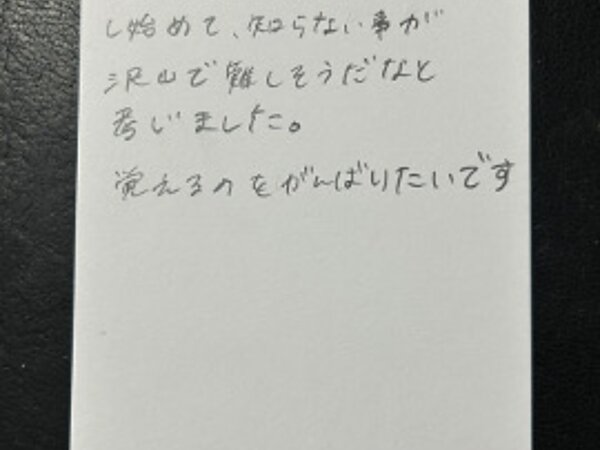 し始めて、知らない事が
沢山で難しそうだなと
感じました。
覚えるのをがんばりたいです